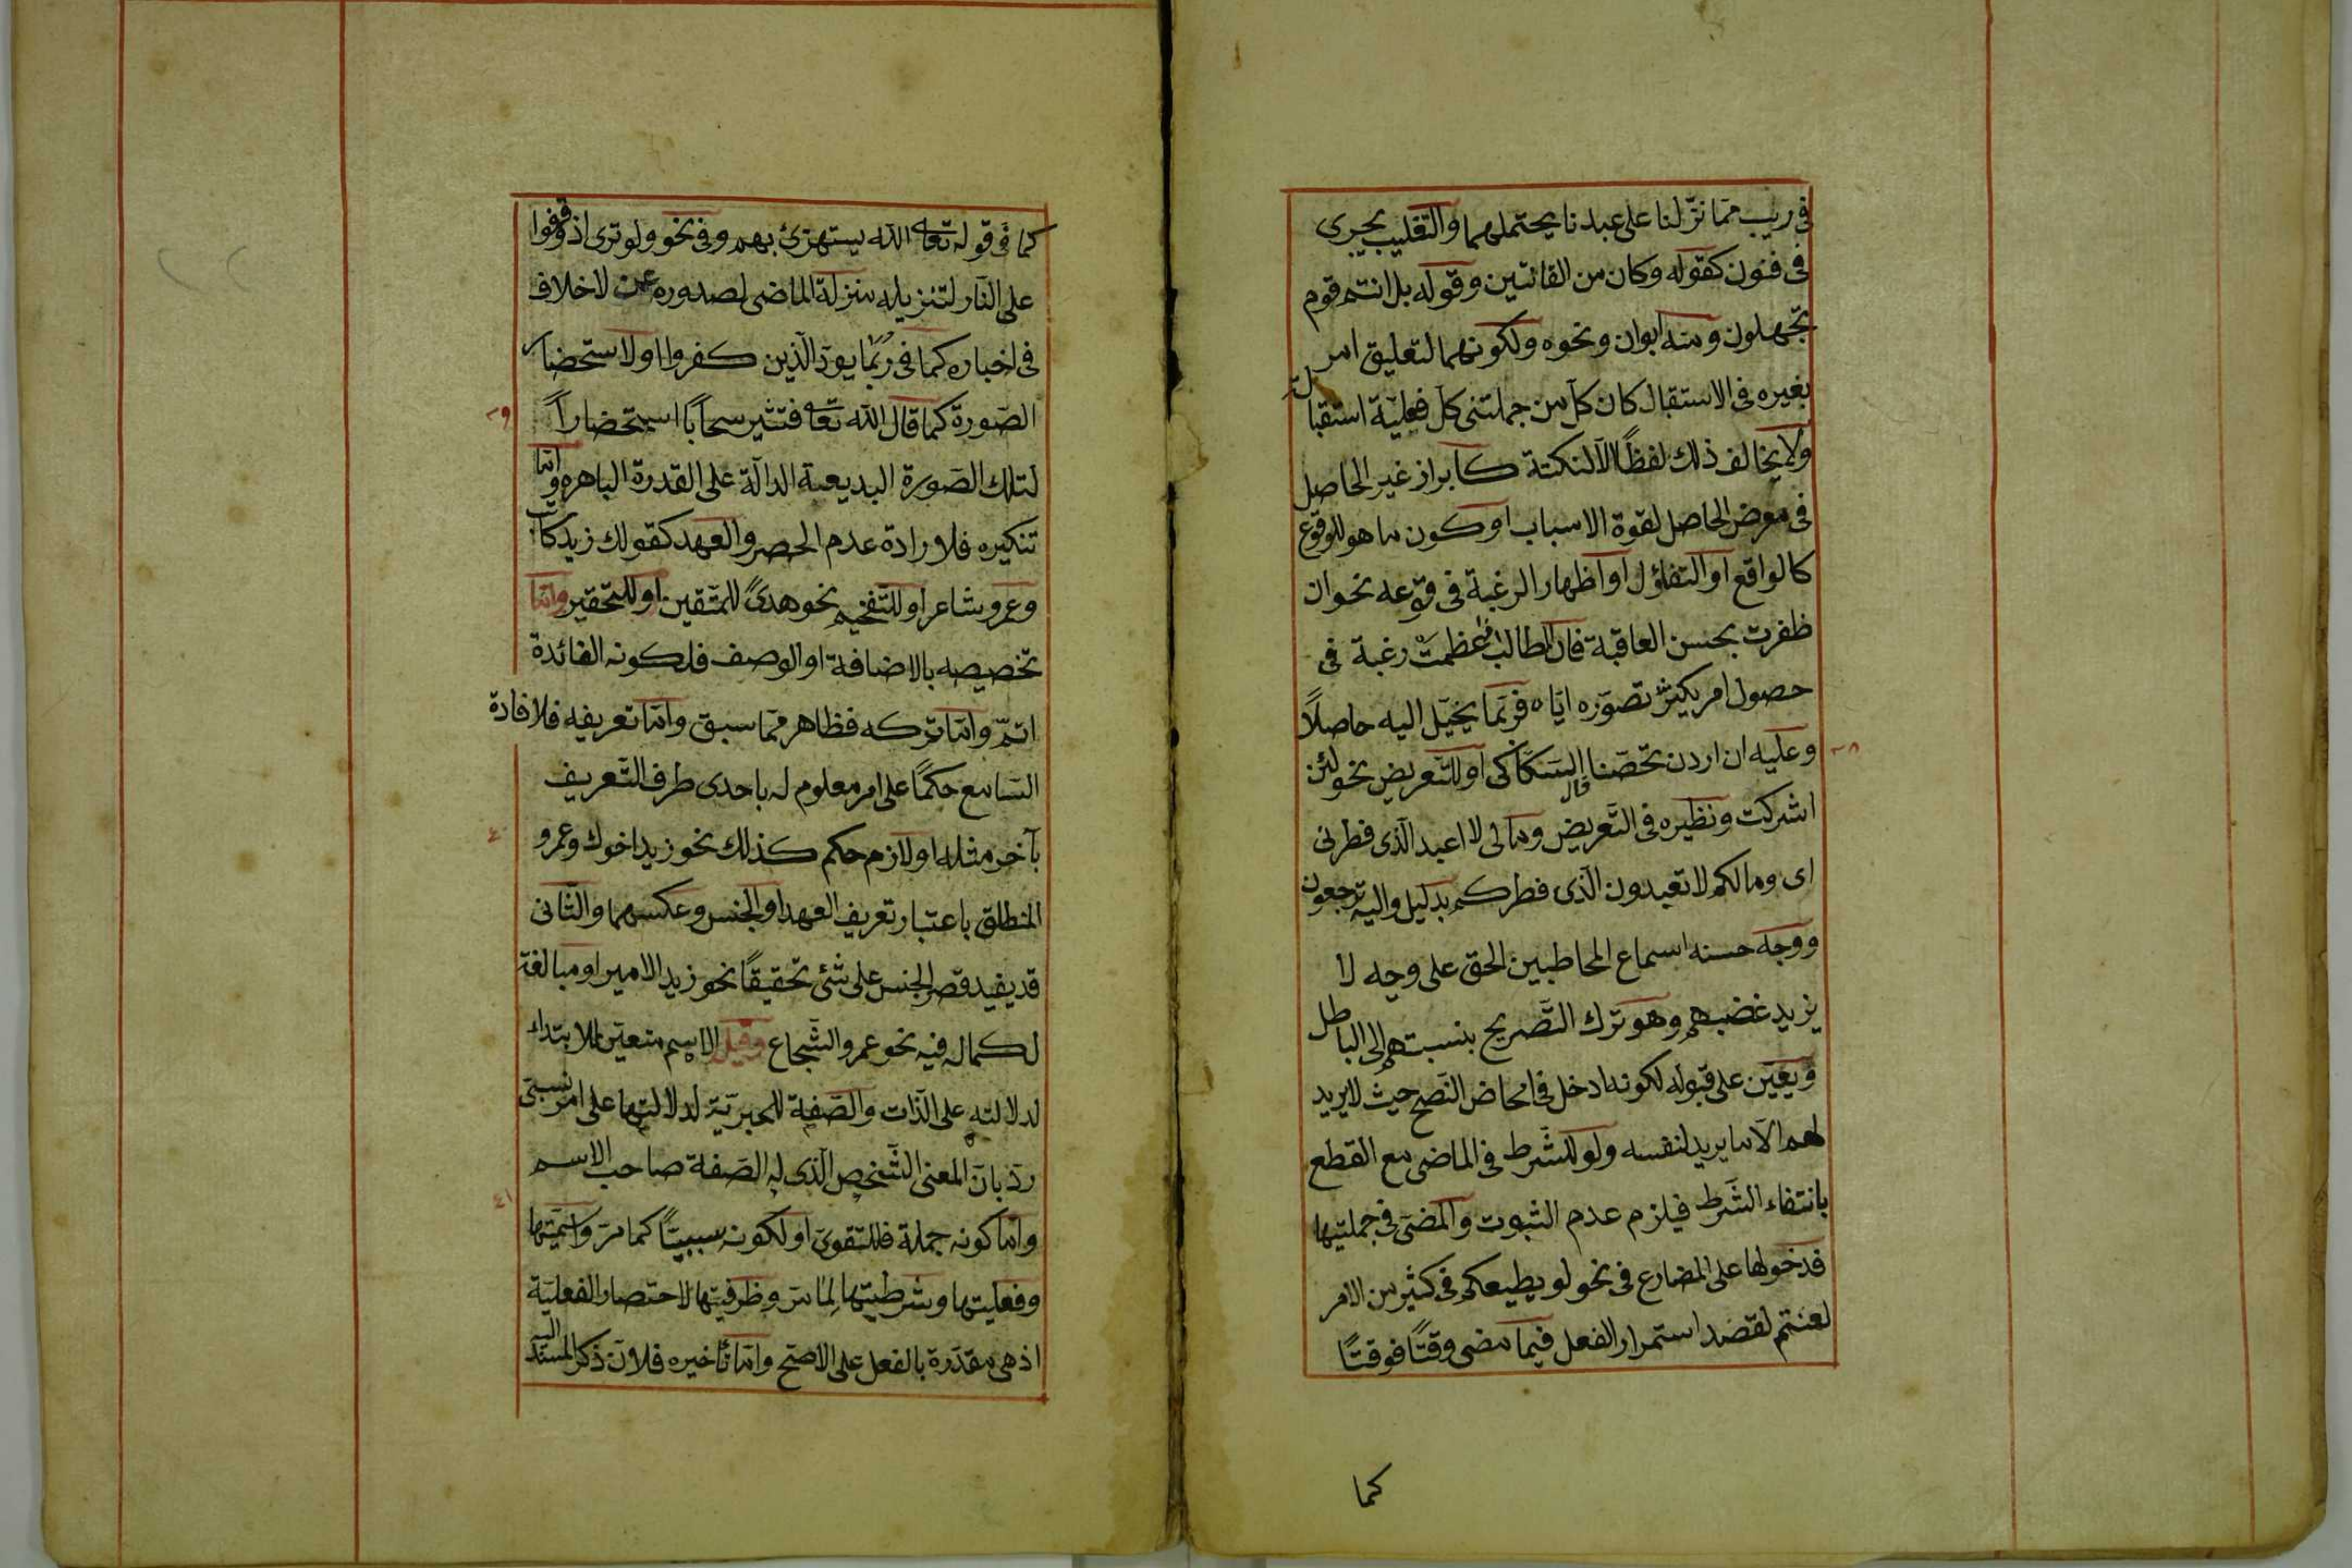 في ريب مما نزلنا على عبدنا يحتملهما والتغليب يجرى
فى فنون كقوله وكان من القانتين وقوله بل انتم قوم
تجهلون ومنه ابوان ونحوه ولكونهما لتعليق امر
بغيره فى الاستقبال كان كل من جملتى كل فعلية استقبالية
ولا يخالف ذلك لفظًا الا لنكتة كابراز غير الحاصل
فى معرض الحاصل لقوة الاسباب او كون ما هو للوقوع
كالواقع او التفاؤل او اظهار الرغبة فى وقوعه نحو ان
ظفرت بحسن العاقبة فان الطالب اذا عظمت رغبة فى
حصول امر يكثر تصوره اياه فربما يخيل اليه حاصلًا
وعليه ان اردن تحصنا قال السكاكى او للتعريض نحو لئن
اشركت ونظيره فى التعريض ومالى لا اعبد الذى فطرنى
اى وما لكم لا تعبدون الذى فطركم بدليل واليه ترجعون
ووجه حسنه اسماع المخاطبين الحق على وجه لا
يزيد غضبهم وهو ترك التصريح بنسبتهم الى الباطل
ويعين على قبوله لكونه ادخل فى امحاض النصح حيث لا يريد
لهم الا ما يريد لنفسه ولو للشرط فى الماضى مع القطع
بانتفاء الشرط فيلزم عدم الثبوت والمضى فى جملتيها
فدخولها على المضارع فى نحو لو يطيعكم فى كثير من الامر
لعنتم لقصد استمرار الفعل فيما مضى وقتًا فوقتًا
كما
٣٨
كما فى قوله تعالى الله يستهزئ بهم وفى نحو ولو ترى اذ وقفوا
على النار لتنزيله منزلة الماضى لصدوره عمن لا خلاف
فى اخباره كما فى ربما يود الذين كفروا او لاستحضار
الصورة كما قال الله تعالى فتثير سحابًا استحضارًا
لتلك الصورة البديعة الدالة على القدرة الباهره واما
تنكيره فلارادة عدم الحصر والعهد كقولك زيد كاتب
وعمرو شاعر او للتفخيم نحو هدىً للمتقين او للتحقير واما
تخصيصه بالاضافة او الوصف فلكونه الفائدة
اتم واما تركه فظاهر مما سبق واما تعريفه فلافادة
السامع حكمًا على امر معلوم له باحدى طرف التعريف
بآخر مثله او لازم حكم كذلك نحو زيد اخوك وعمرو
المنطلق باعتبار تعريف العهد او الجنس وعكسهما والثانى
قد يفيد قصر الجنس على شئ تحقيقًا نحو زيد الامير او مبالغة
لكماله فيه نحو عمرو الشجاع وقيل الاسم متعين للابتداء
لدلالته على الذات والصفة للخبرية لدلالتها على امر نسبى
رد بان المعنى الشخص الذى له الصفة صاحب الاسم
واما كونه جملة فللتقوى او لكونه سببيًا كما مر واسميتها
وفعليتها وشرطيتها لما مر وظرفيتها لاختصار الفعلية
اذ هى مقدرة بالفعل على الاصح واما تأخيره فلان ذكر المسند اليه
٣٩
٤٠
٤١